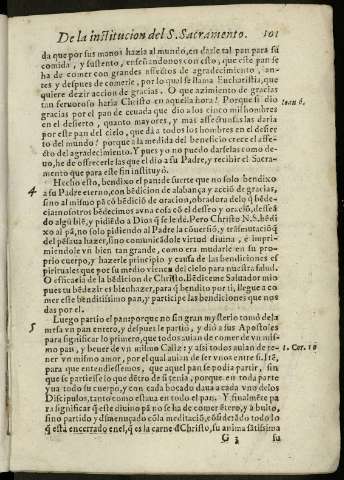 De la institucion del S. Sacramento. 101
da que por sus manos hazia al mundo, en darle tal pan para su
comida, y sustento, enseñandonos con esto; que este pan se
ha de comer con grandes affectos de agradecimiento, an-
tes y despues de comerle, por lo qual se llama Eucharistia, que
quiere dezir accion de gracias. O que azimiento de gracias
tan feruoroso haria Christo en aquella hora! Porque si dio
gracias por el pan de ceuada que dio a los cinco mil hombres
en el desierto, quanto mayores, y mas affectuosas las daria
por este pan del cielo, que dà a todos los hombres en el desier
to del mundo? porque a la medida del beneficio crece el affe-
cto del agradecimiento. Y pues yo no puedo darselas como de-
uo, he de offrecerle las que el dio a su Padre, y recibir el Sacra-
mento que para este fin instituyó.
Ioan. 6.
4
Hecho esto, bendixo el pan: de suerte que no solo bendixo
a su Padre eterno, con bēdicion de alabança y acció de gracias,
sino al mismo pā cō bēdició de oracion, obradora de lo q̃ bēde-
cia: nosotros bēdecimos a vna cosa cō el desseo y oració, deseā-
do algū biē, y pidiēdo a Dios q̃ se le dè. Pero Christo N. S. bēdi
xo al pā, no solo pidiendo al Padre la cōuersió, y trāsmutació
del pē saua hazer, sino comunicādole virtud diuina, è impri-
miendole vn bien tan grande, como era mudarle en su pro-
prio cuerpo, y hazerle principio y causa de las bendiciones es
pirituales que por su medio vienen del cielo para nuestra salud.
O efficacia de la bēdicion de Christo. Bēdiceme Saluador mio
pues tu bēdezir es bien hazer, para q̃ bendito por ti, llegue a co
mer este benditissimo pan, y participe las bendiciones que nos
das por el.
5
Luego partio el pan: porque no sin gran mysterio tomó de la
mesa vn pan entero, y despues le partió, y dió a sus Apostoles
para significar lo primero, que todos auian de comer de vn mis-
mo pan, y beuer de vn mismo Caliz: y assi todos auian de te-
ner vn mismo amor, por el qual auian de ser vnos entre si. Itē,
para que entendiessemos, que aquel pan se podia partir, sin
que se partiesse lo que dētro de si tenia, porque en toda parte
ya todo su cuerpo, y con cada bocado daua a cada vno de los
Discipulos, tanto como estaua en todo el pan. Y finalmēte pa
ra significar q̃ este diuino pā no se ha de comer ētero, y à bulto,
sino partido y desmenuçado cō la meditació, cōsiderādo todo lo
q̃ està encerrado en el, q̃ es la carne d̃ Christo, su anima sātissima
1. Cor. 10
G 3 su